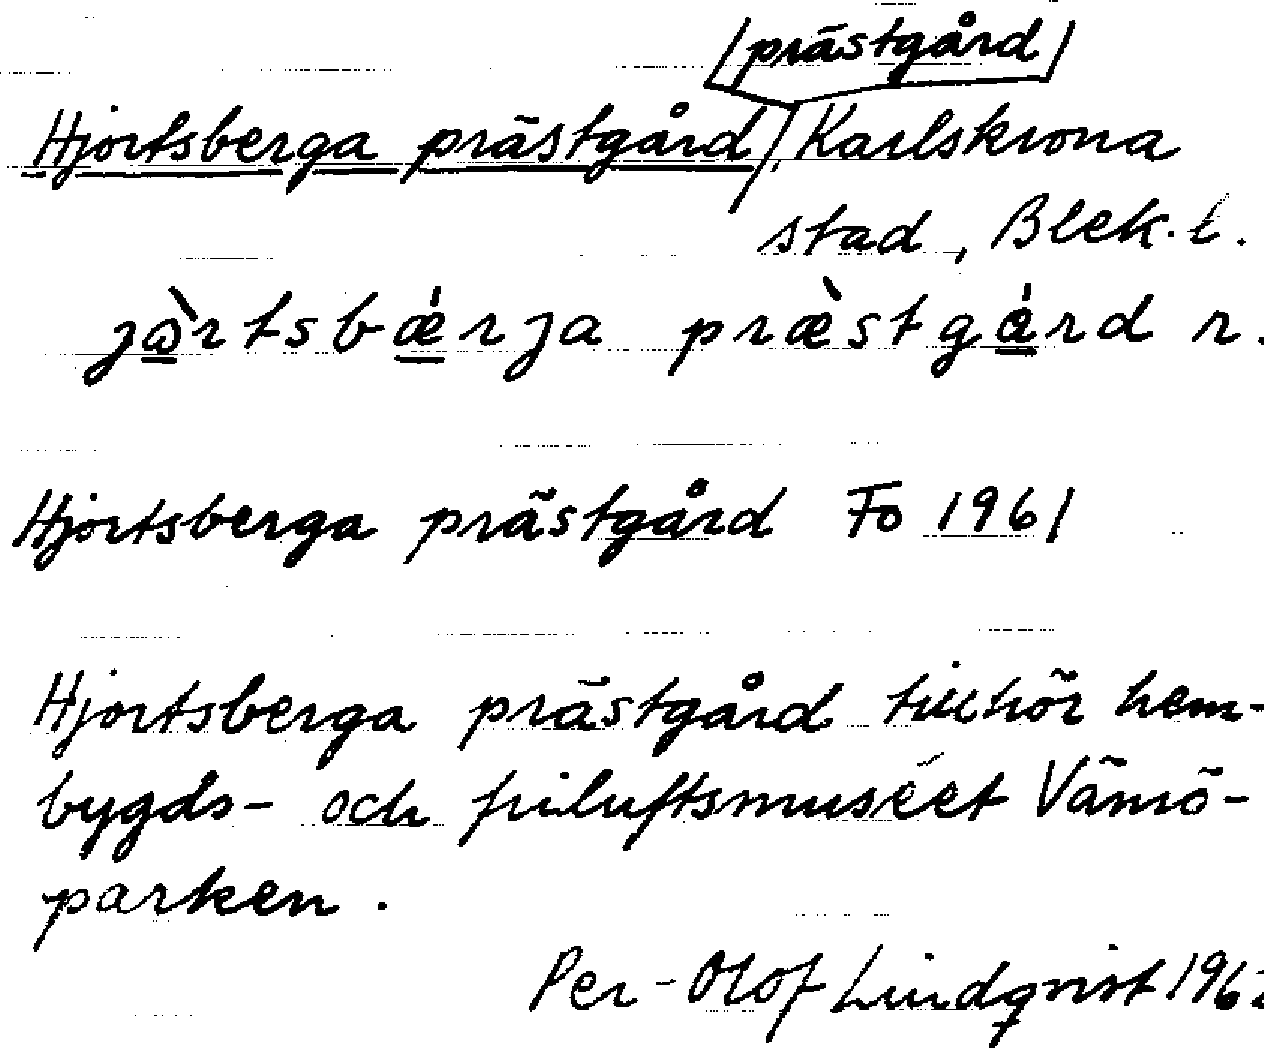 /prästgård/
Hjortsberga prästgård/, Karlskrona
stad, Blek. l.
jὼrtsbǽrja præ̀stgárd r.
Hjortsberga prästgård Fo 1961
Hjortsberga prästgård tillhör hem-
bygds- och friluftsmuséet Vämö-
parken.
Per-Olof Lindqvist 1962